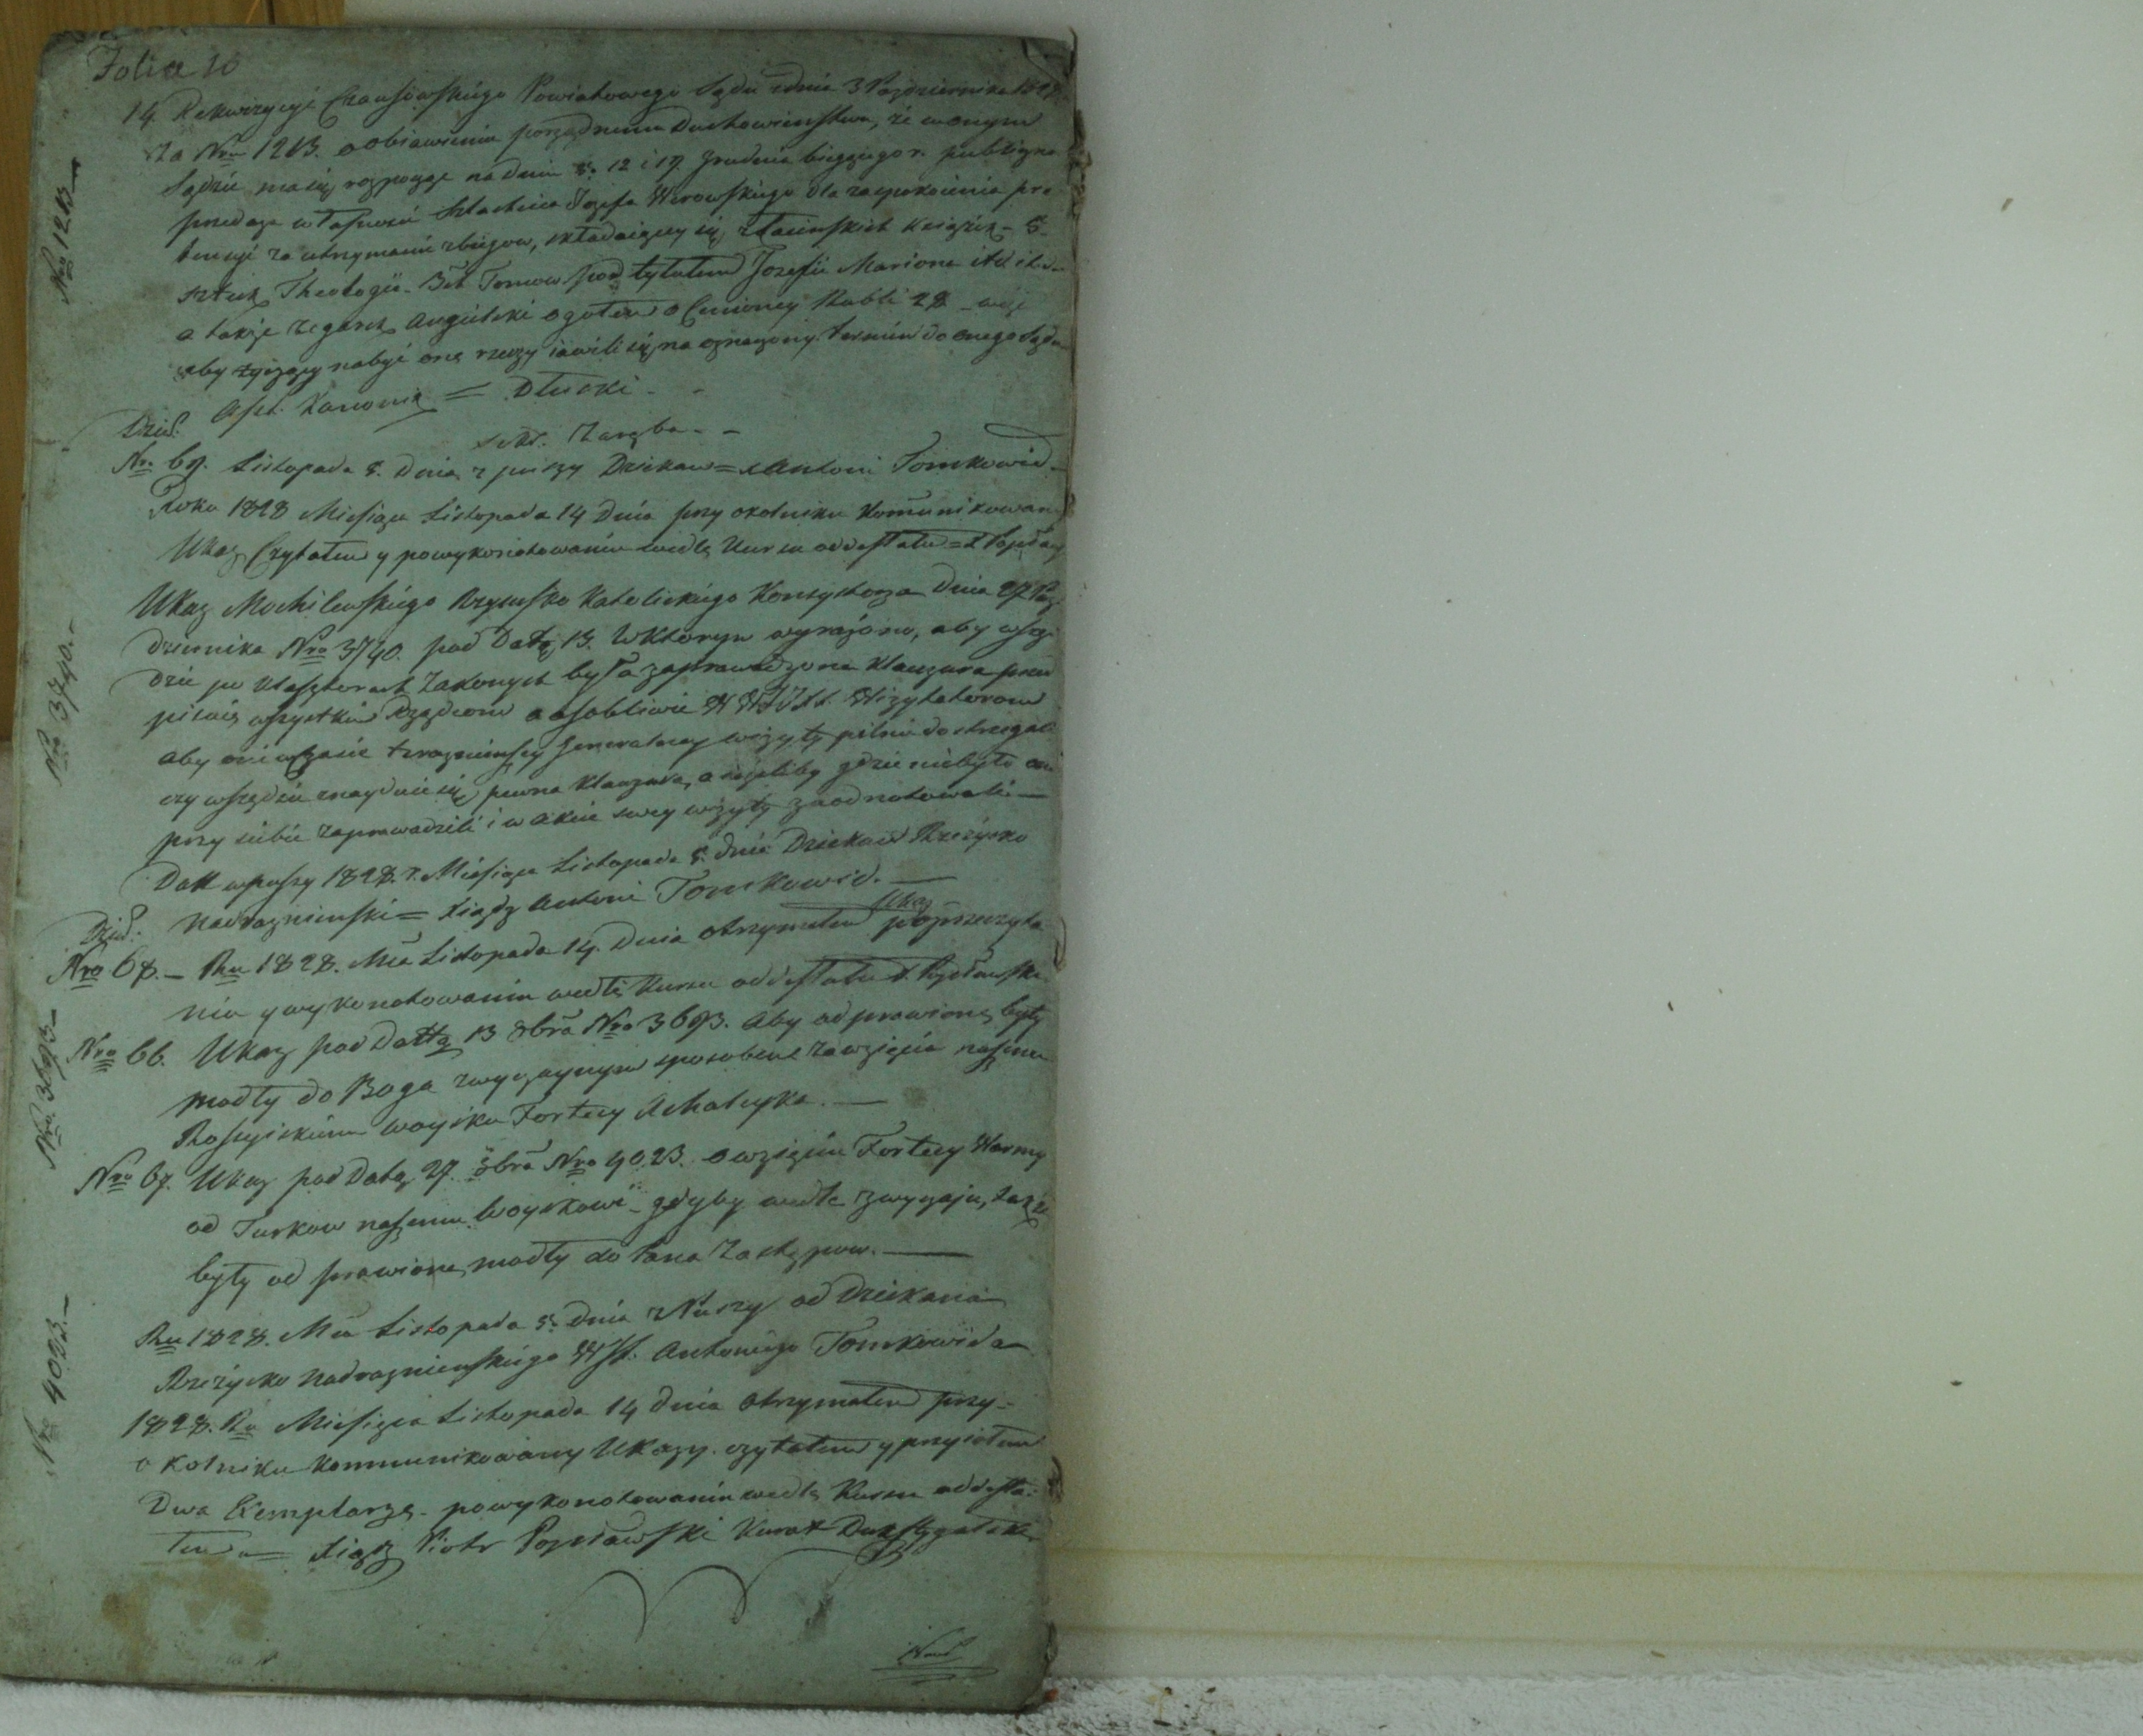 Folia 16
14. Rekwizycyi Czausowskiego Powiatowego Sądu z dnia 3 Pazdziernika 1828
Za Nrm 1213. o obiawieniu Duchowieństwu, że w onym
Sądzie ma się na dniu 12 i 17. Grudnia bieżącego r. publiczna
przedaża własności Szlachcica Jozefa dla zaspokoienia pre
tensyi za utrzymanie zbiegow, składaiącey się z łacinskich Książek 5.
sztuk Theologii Tomow pod tytułem Jozefii Mariona itd itd
a także zegarek Angielski ogołem oCenioney Rubli 28
aby życzący nabyć one rzeczy iawili się na oznaczony termin do onego Sądu
Ass. Kanonik = Dłuski
Sekr. Zaręba - -
Dzied.
Nr. 69. Listopada 5. Dnia z puszy Dziekan = xAntoni Tomkowid
Roku 1828 Miesiąca Listopada 14 Dnia przy okolniku Komunikowany
Ukaz Czytałem y powykonotowaniu wedle Kursu oddesłałem = X
Ukaz Mochilewskiego Rzymsko Katolickiego Konsystorza Dnia 27 Paz
dziernika Nro 3740. pod Datą 13. W Ktorym wyrażono, aby wszę
dzie po Klasztorach Zakonych była zaprowadzona Klauzura
wszystkim Rządcom a osobliwie Wizytatorom
aby oni w czasie Generalney wizyty pilnie dostrzegali
czy wszędzie znayduie się pewna Klauzura, a ieżeliby gdzie niebyło oni
przy sobie zaprowadzili i w akcie swey wizyty zaodnotowali —
Datt w puszy 1828. r. Miesiąca Listopada 5. dnia Dziekan Rzeżycko
Nadrazniewski = Xiądz Antoni Tomkowid. —
Dzied:
Nro 68. — Ru 1828. Mca Listopada 14. Dnia otrzymałem Ukaz poprzeczyta
niu y wykonotowaniu wedle Kursu oddesłałem X.
Nro 66. Ukaz pod Dattą 13 8bra Nro 3693. Aby odprawione były
modły do Boga zwyczaynym sposobem zawzięcia naszemu
Rossyiskiemu woysku Fortecy Achalcyka. —
Nro 67. Ukaz pod Datą 27. 8bra Nro 4023. o wzięciu Fortecy Warny
od Turkow naszemu Woyskowi gdyby wedle zwyczaju, także
były od prawione modły do Pana Zastępow. —
Ru 1828. Mca Listopada 5. dnia z Puszy od Dziekana
Rzeżycko Nadrazniewskiego Antoniego Tomkowida
1828. Ru Miesiąca Listopada 14 dnia Otrzymałem przy-
okolniku Kommunikowany Ukazy czytałem y przyiołem
Dwa Exemplarze powykonotowaniu wedle Kursu oddesła-
łem = Xiądz Piotr Kurat
Nro 1213 —
Nro 3740. —
Nro. 3693 —
Nro 4023. —